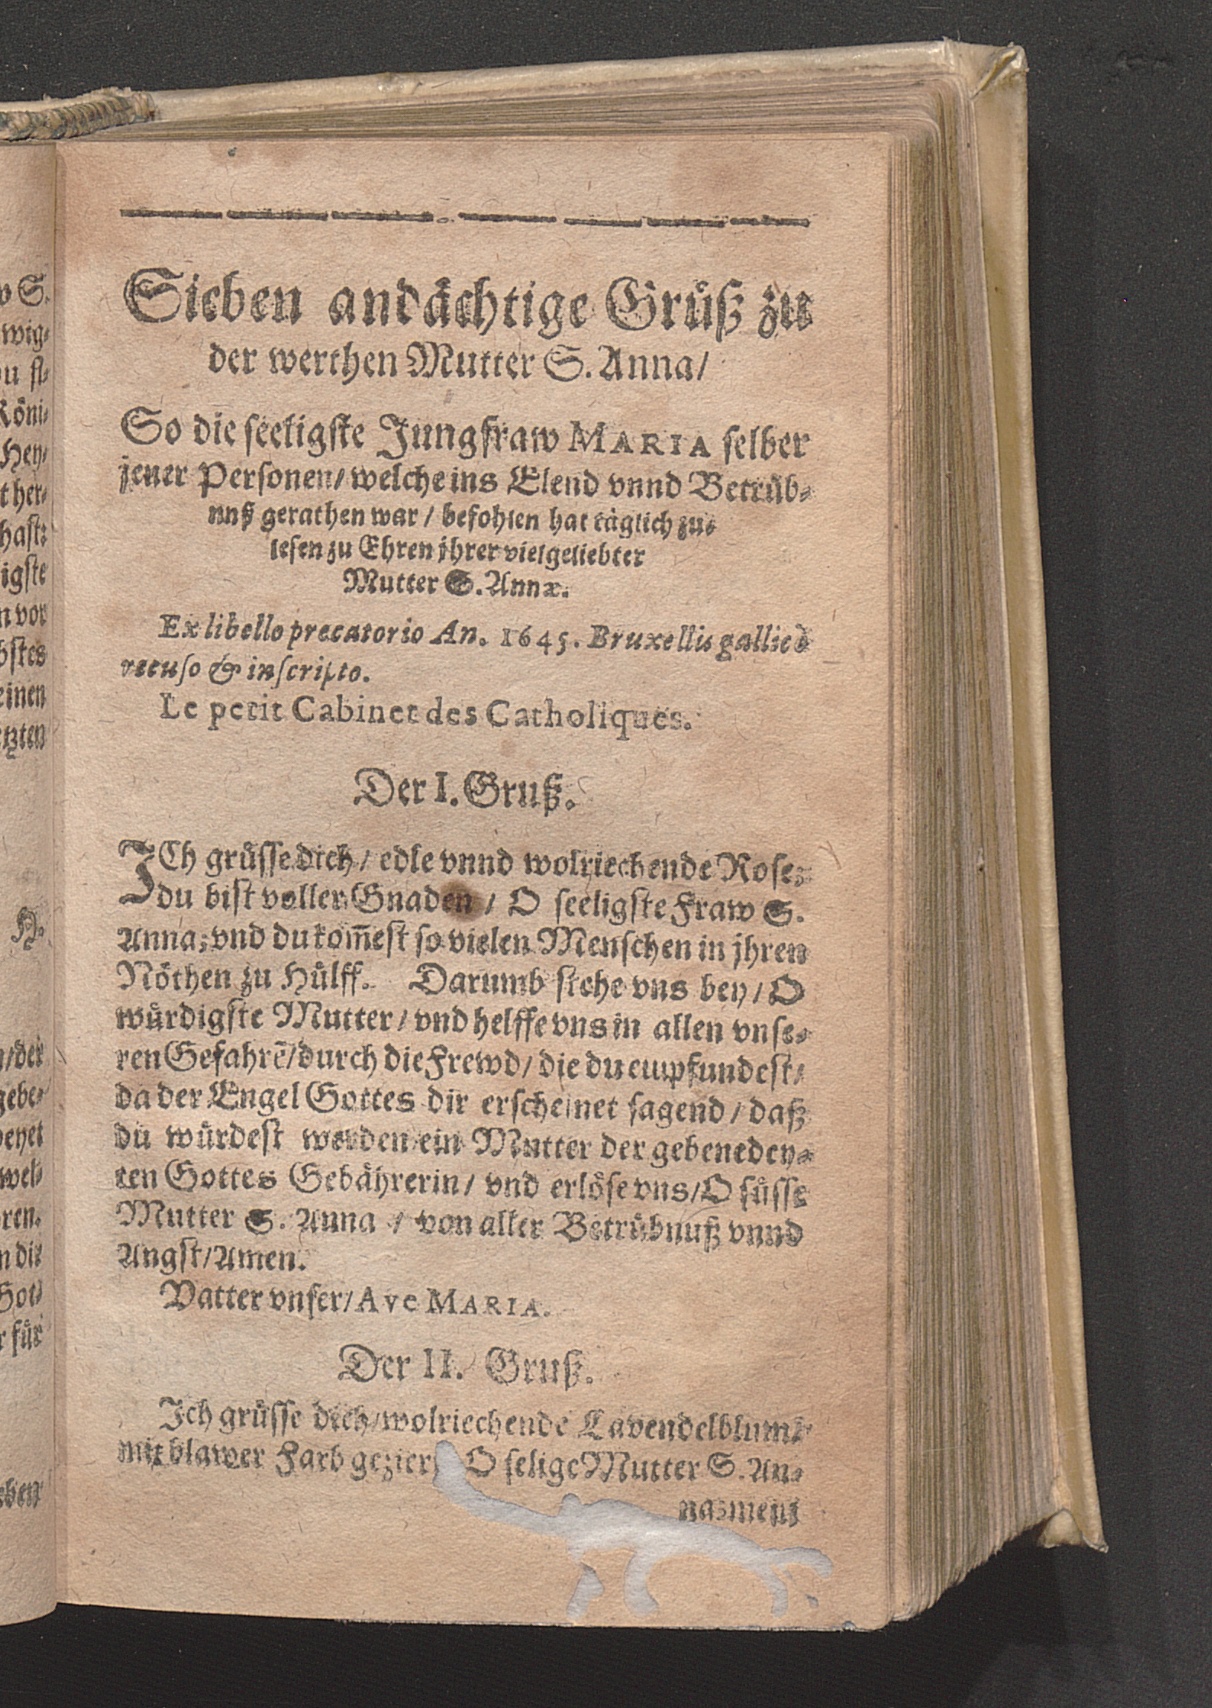 Sieben andächtige Grüß zu
der werthen Mutter S. Anna/
So die seeligste Jungfraw MARIA selber
jener Personen/ welche ins Elend vnnd Betrüb-
nuß gerathen war / befohlen hat täglich zu-
lesen zu Ehren jhrer vielgeliebter
Mutter S. Annæ.
Ex libello precatorio An. 1645. Bruxellis gallicè
recuso & inscripto.
Le petit Cabinet des Catholiques.
Der I. Gruß.
ICh grüsse dich / edle vnnd wolriechende Rose:
du bist voller Gnaden / O seeligste Fraw S.
Anna; vnd du kom̃est so vielen Menschen in jhren
Nöthen zu Hülff. Darumb stehe vns bey / O
würdigste Mutter / vnd helffe vns in allen vnse-
ren Gefahrẽ/ durch die Frewd / die du empfundest/
da der Engel Gottes dir erscheinet sagend / daß
du würdest werden ein Mutter der gebenedey-
ten Gottes Gebährerin / vnd erlöse vns/ O süsse
Mutter S. Anna / von aller Betrübnuß vnnd
Angst/ Amen.
Vatter vnser/ Ave MARIA.
Der II. Gruß.
Ich grüsse dich/ wolriechende Lavendelblum/
mit blawer Farb geziert O selige Mutter S. An-
na; mens
w S.
wig-
Köni-
Hey-
t her-
hast;
igste
n vor
bstes
einen
tzten
N.
/ der
gebe-
wel-
ren.
n die
Got-
r für
eben